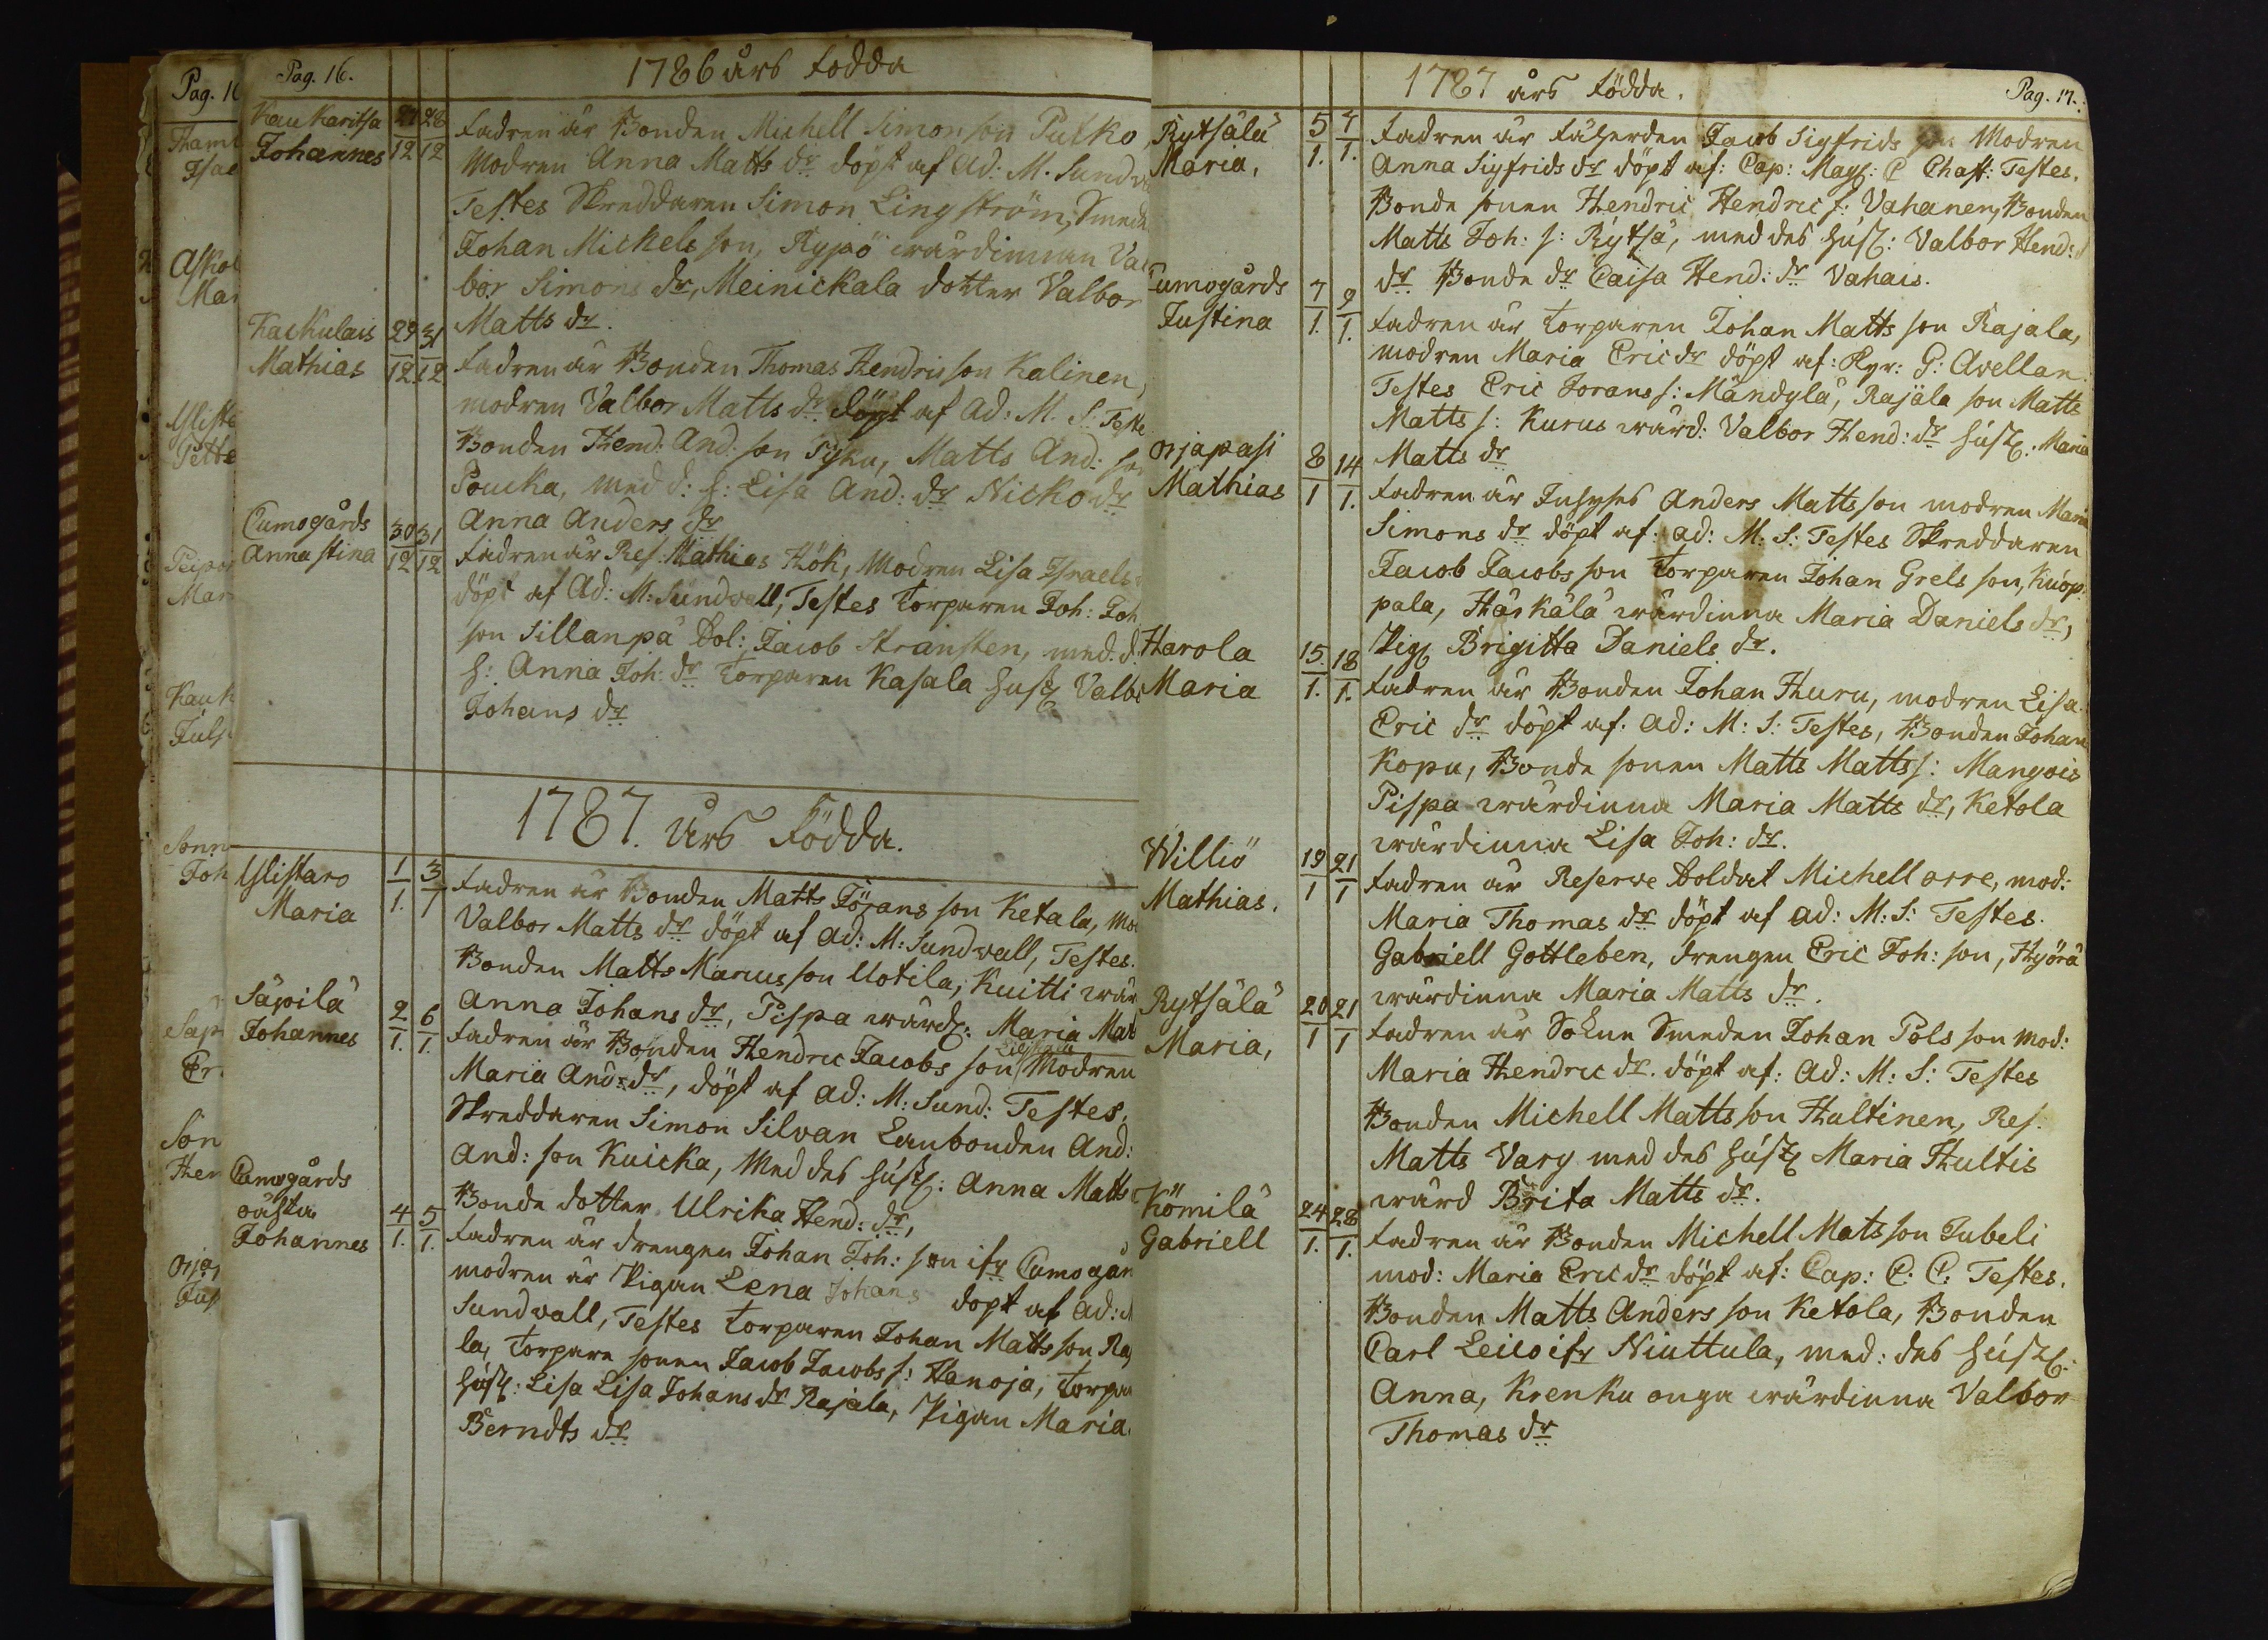 Pag. 16.
1786 års födda
Kaukaritsa 27/12 28/12
Johannes
Fadren är Bonden Michell Simonson Putko
Modren Anna Matts dr döpt af Ad: M. Sundv
Testes Skreddaren Simon Lingström, Smede
Johan Mickels son, Rypö wärdinnan Val
bor Simons dr, Meinickala dotter Valbor
Matts dr.
Kackulais 29/12 31/12
Mathias
Fadren är Bonden Thomas Hendricson Kalinen,
modren Valbor Matts dr döpt af Ad: M. S. Teste
Bonden Hend: And: son Syku, Matts And: so
Poucka, med d: h: Lisa And: dr Nicko dr
Anna Anders dr
Cumogårds 30/12 31/12
Anna Stina
Fadren är Res. Mathias Hök, Modren Lisa Israels
döpt af Ad: M: Sundvall, Testes Torparen Joh: Joh
son Sillanpä Sol: Jacob Stransten, med. d.
h: Anna Joh: dr Torparen Kasala hust Valb
Johans dr
1787. års Födda.
Ylistaro 1/1. 3/1
Maria
Fadren är Bonden Matts Jörans son Ketala, mo
Valbor Matts dr döpt af Ad: M: Sundvall, Testes.
Bonden Matts Marcusson Uotila, Kuitti wär
Anna Johans dr, Pispa wärd: Maria Mat
Säpilä 2/1. 6/1.
Johannes
Fadren är Bonden Hendric Jacobs son Modren
Maria And: dr, döpt af Ad: M: Sund: Testes,
Skreddaren Simon Silvan Lanbonden And:
And: son Kuicka, Med des hust: Anna Matts
Bonde dotter Ulrika Hend: dr,
Cumogårds
Johannes 4/1. 5/1.
Fadren är drengen Johan Joh: son ifr Cumogår
modren är Pigan Lena Johans döpt af Ad:
Sundvall, Testes Torparen Johan Matts son Ra
la, Torpare sonen Jacob Jacobs s: Hanoja, Torpar
hust: Lisa Lisa Johans dr Rajala, Pigan Maria
Berndts dr
1787 års Födda.
Pag. 17.
Rytsälä 5/1. 7/1.
Maria,
Fadren är fäherden Jacob Sigfrids son Modren
Anna Sigfrids dr döpt af: Cap: Mag: C Chast: Testes,
Bonde sonen Hendric Hendric s: Vahanen, Bonden
Matts Joh: s: Rytsä, med des hust: Valbor Hend:
dr Bonde dr Caisa Hend: dr Vahais.
Cumogårds 7/1. 9/1.
Justina
Fadren är Torparen Johan Matts son Rajala,
modren Maria Eric dr döpt af: Kyr: G: Avellan
Testes Eric Jorans s: Mändylä, Rajäla son Matts
Matts s: Kurus wärd: Valbor Hend: dr hust. Maria
Matts dr
Orjapasi 8/1 14/1.
Mathias
Fadren är Inhyses Anders Matts son modren Maria
Simons dr döpt af: Ad: M: S: Testes Skreddaren
Jacob Jacobs son Torparen Johan Grels son, Kuop
pala, Häskälä wärdinna Maria Daniels dr,
Pig Brigitta Daniels dr.
Harola 15./1. 18/1.
Maria
Fadren är Bonden Johan Huru, modren Lisa
Eric dr döpt af: Ad: M: S: Testes, Bonden Johan
Kopu, Bonde sonen Matts Matts s: Mangois
Pispa wärdinna Maria Matts dr, Ketola
wärdinna Lisa Joh: dr.
Williö 19/1 21/1
Mathias.
Fadren är Reserve Soldat Michell Orre, mod:
Maria Thomas dr döpt af Ad: M: S: Testes.
Gabriell Gottleben, drengen Eric Joh: son, Hyörä
wärdinna Maria Matts dr.
Rytsälä 20/1 21/1
Maria,
Fadren är Sokne Smeden Johan Pols son mod:
Maria Hendric dr. döpt af: Ad: M: S: Testes
Bonden Michell Matts son Hultinen, Res.
Matts Varg med des hust Maria Hultis
wärd Brita Matts dr.
Kömilä 24/1. 28/1.
Gabriell
Fadren är Bonden Michell Matsson Jubeli
mod: Maria Eric dr döpt af: Cap: C: C. Testes.
Bonden Matts Anders son Ketola, Bonden
Carl Leico ifr Niuttula, med: des hust:
Anna, Krenku onga wärdinna Valbor
Thomas dr